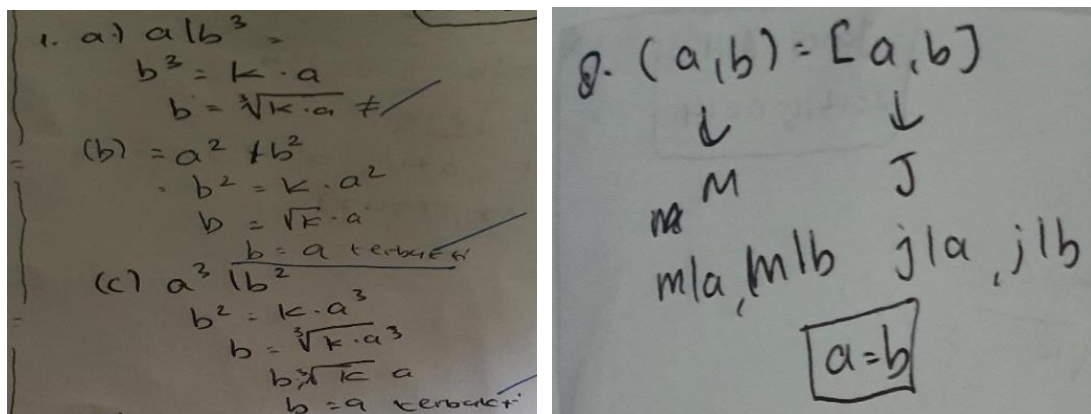 1. a.) a|b³
b³ = k · a
b = ∛k·a ≠
(b) = a² | b²
b² = k · a²
b = √k · a
b = a terbukti
(c) a³ | b²
b² = k · a³
b = ∛k·a³
b = ∛k a
b = a terbukti
2. (a,b) = [a,b]
↓ ↓
M J
m|a, m|b j|a, j|b
a=b